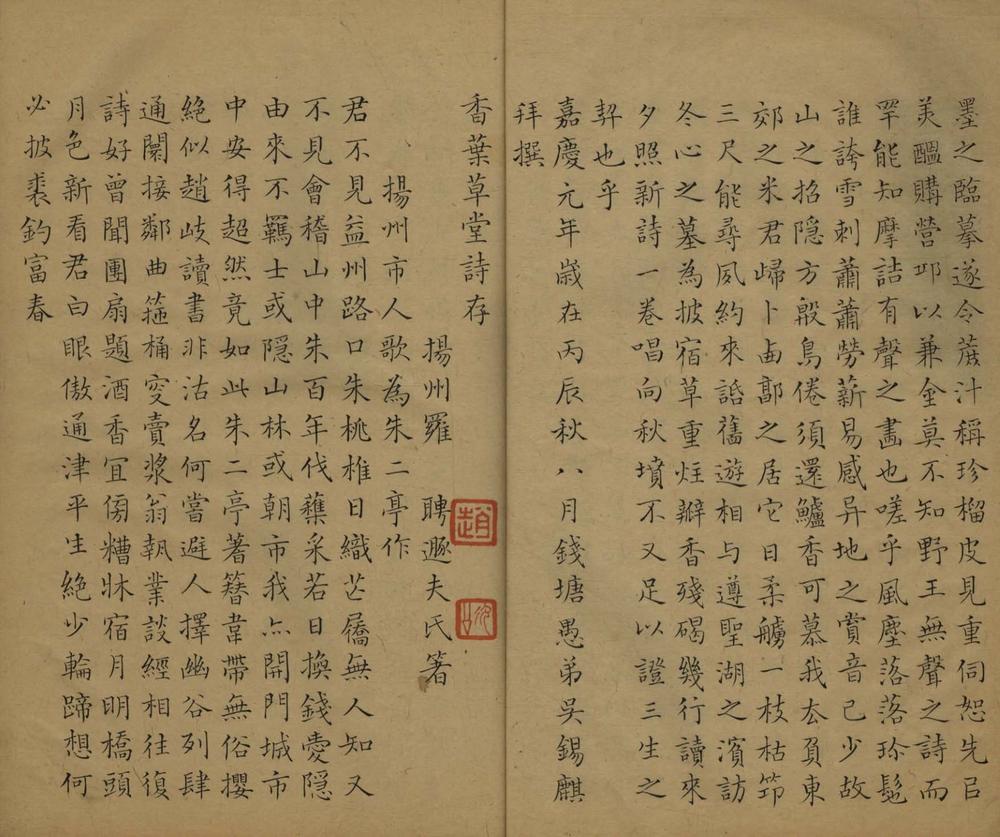 墨之臨摹遂令蔗汁稱珍榴皮見重伺恕先㠯
美醞購營邱以兼金莫不知野王無聲之詩而
罕能知摩詰有聲之畫也嗟乎風塵落落珍髢
誰誇雪刺蕭蕭勞薪易感异地之賞音已少故
山之招隱方殷鳥倦須還鱸香可慕我厺負東
郊之米君歸卜鹵郭之居它日柔艣一枝枯筇
三尺能尋夙約來話舊遊相与遵聖湖之濱訪
冬心之墓為披宿草重炷瓣香殘碣幾行讀來
夕照新詩一卷唱向秋墳不又足以證三生之
契也乎
嘉慶元年歲在丙辰秋八月錢塘愚弟吳錫麒
拜撰
香葉草堂詩存
揚州羅聘遯夫氏著
趙
揚州市人歌為朱二亭作
君不見益州路口朱桃椎日織芒屩無人知又
不見會稽山中朱百年伐蘓采若日換錢愛隱
由來不羈士或隱山林或朝市我亦開門城市
中安得超然竟如此朱二亭著簪韋帶無俗攖
絕似趙岐讀書非沽名何當避人擇幽谷列肆
通闤接鄰曲箍桶宴賣漿翁執業談經相往復
詩好曾聞團扇題酒香宜傍糟牀宿月明橋頭
月色新看君白眼傲通津平生絕少輪蹄想何
必披裘釣富春